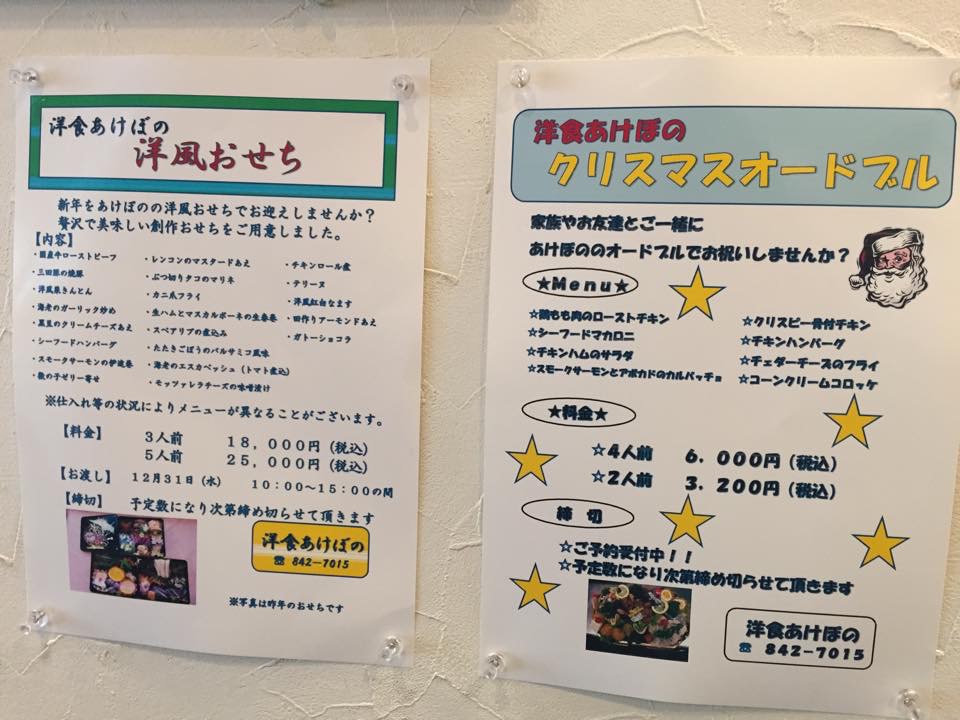 洋食あけぼの
洋風おせち
新年をあけぼのの洋風おせちでお迎えしませんか？
贅沢で美味しい創作おせちをご用意しました。
【内容】
・国産牛ローストビーフ
・三田豚の焼豚
・洋風栗きんとん
・海老のガーリック炒め
・黒豆のクリームチーズあえ
・シーフードハンバーグ
・スモークサーモンの伊達巻
・数の子ゼリー寄せ
・レンコンのマスタードあえ
・ぶつ切りタコのマリネ
・カニ爪フライ
・生ハムとマスカルポーネの生春巻
・スペアリブの煮込み
・たたきごぼうのバルサミコ風味
・海老のエスカベッシュ（トマト煮込）
・モッツァレラチーズの味噌漬け
・チキンロール煮
・テリーヌ
・洋風紅白なます
・田作りアーモンドあえ
・ガトーショコラ
※仕入れ等の状況によりメニューが異なることがございます。
【料金】
３人前 １８，０００円（税込）
５人前 ２５，０００円（税込）
【お渡し】 １２月３１日（水） １０：００～１５：００の間
【締切】 予定数になり次第締め切らせて頂きます
洋食あけぼの
☎ 842-7015
※写真は昨年のおせちです
洋食あけぼの
クリスマスオードブル
家族やお友達とご一緒に
あけぼののオードブルでお祝いしませんか？
★Ｍｅｎｕ★
☆鶏もも肉のローストチキン
☆シーフードマカロニ
☆チキンハムのサラダ
☆スモークサーモンとアボカドのカルパッチョ
☆クリスピー骨付チキン
☆チキンハンバーグ
☆チェダーチーズのフライ
☆コーンクリームコロッケ
★料金★
☆４人前 ６，０００円（税込）
☆２人前 ３，２００円（税込）
締 切
☆ご予約受付中！！
☆予定数になり次第締め切らせて頂きます
洋食あけぼの
☎ 842-7015